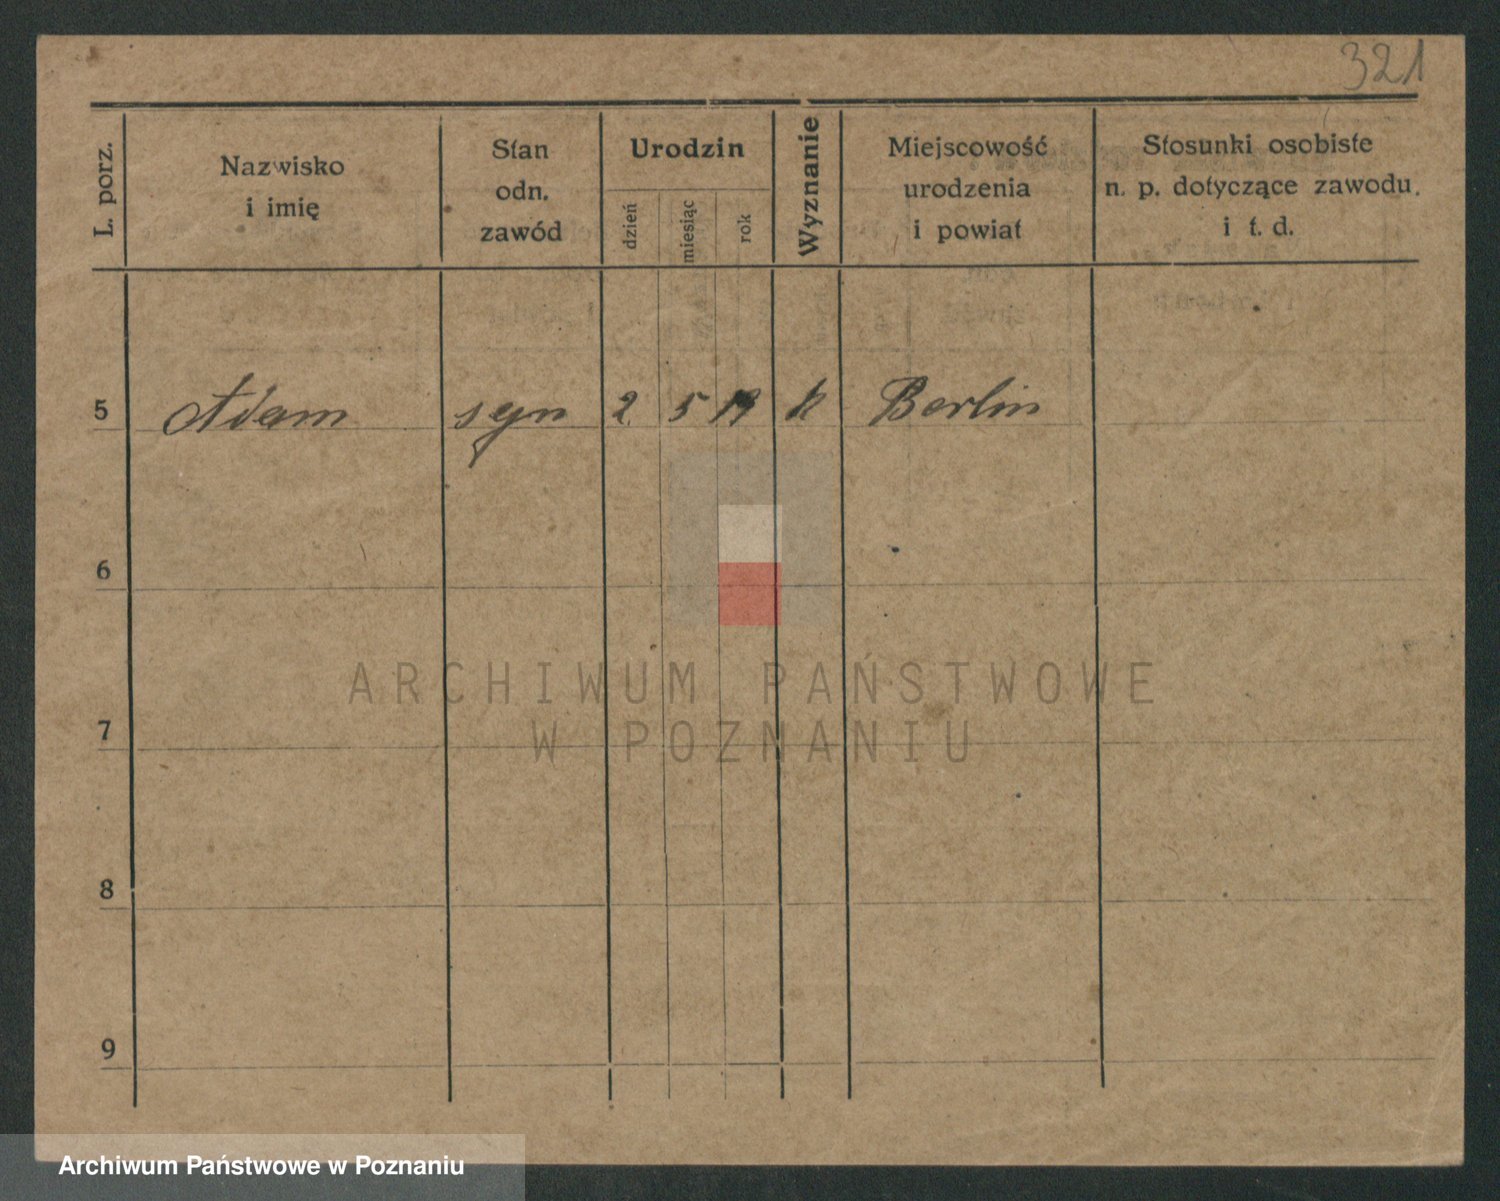 321
L. porz.
Nazwisko
i imię
Stan
odn.
zawód
Urodzin
dzień miesiąc rok
Wyznanie
Miejscowość
urodzenia
i powiat
Stosunki osobiste
n. p. dotyczące zawodu.
i t. d.
5 Adam syn 2. 5 19 k Berlin
6
7
8
9
ARCHIWUM PAŃSTWOWE
W POZNANIU
Archiwum Państwowe w Poznaniu